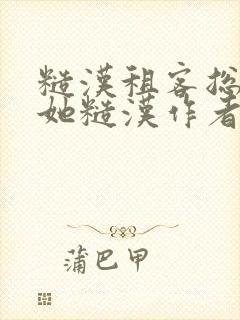 糙漢租客総
她糙漢作者
蒲巴甲